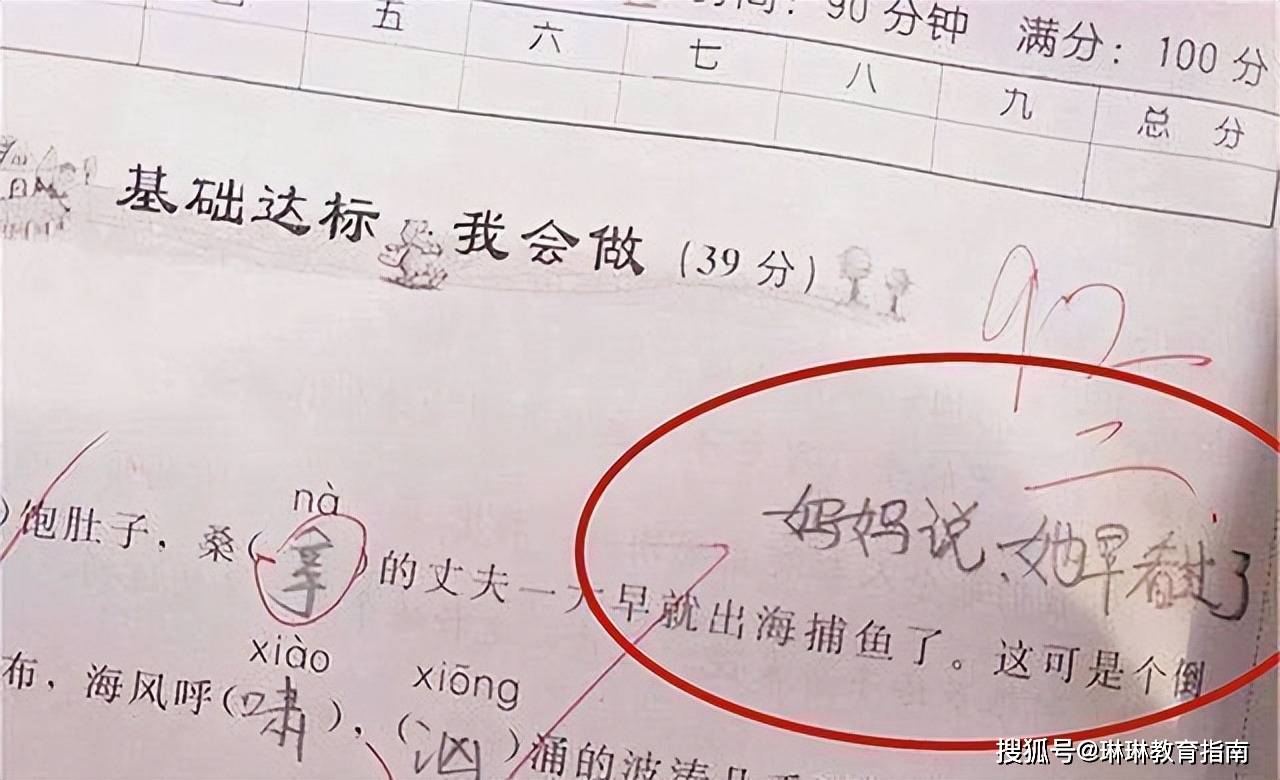 时间：90分钟 满分：100分
五 六 七 八 九 总分
基础达标 我会做 (39分)
92
妈妈说、她早看过了
nà
)饱肚子，桑(拿)的丈夫一大早就出海捕鱼了。这可是个倒
xiào xiōng
布，海风呼(啸)，(汹)涌的波涛
搜狐号@琳琳教育指南